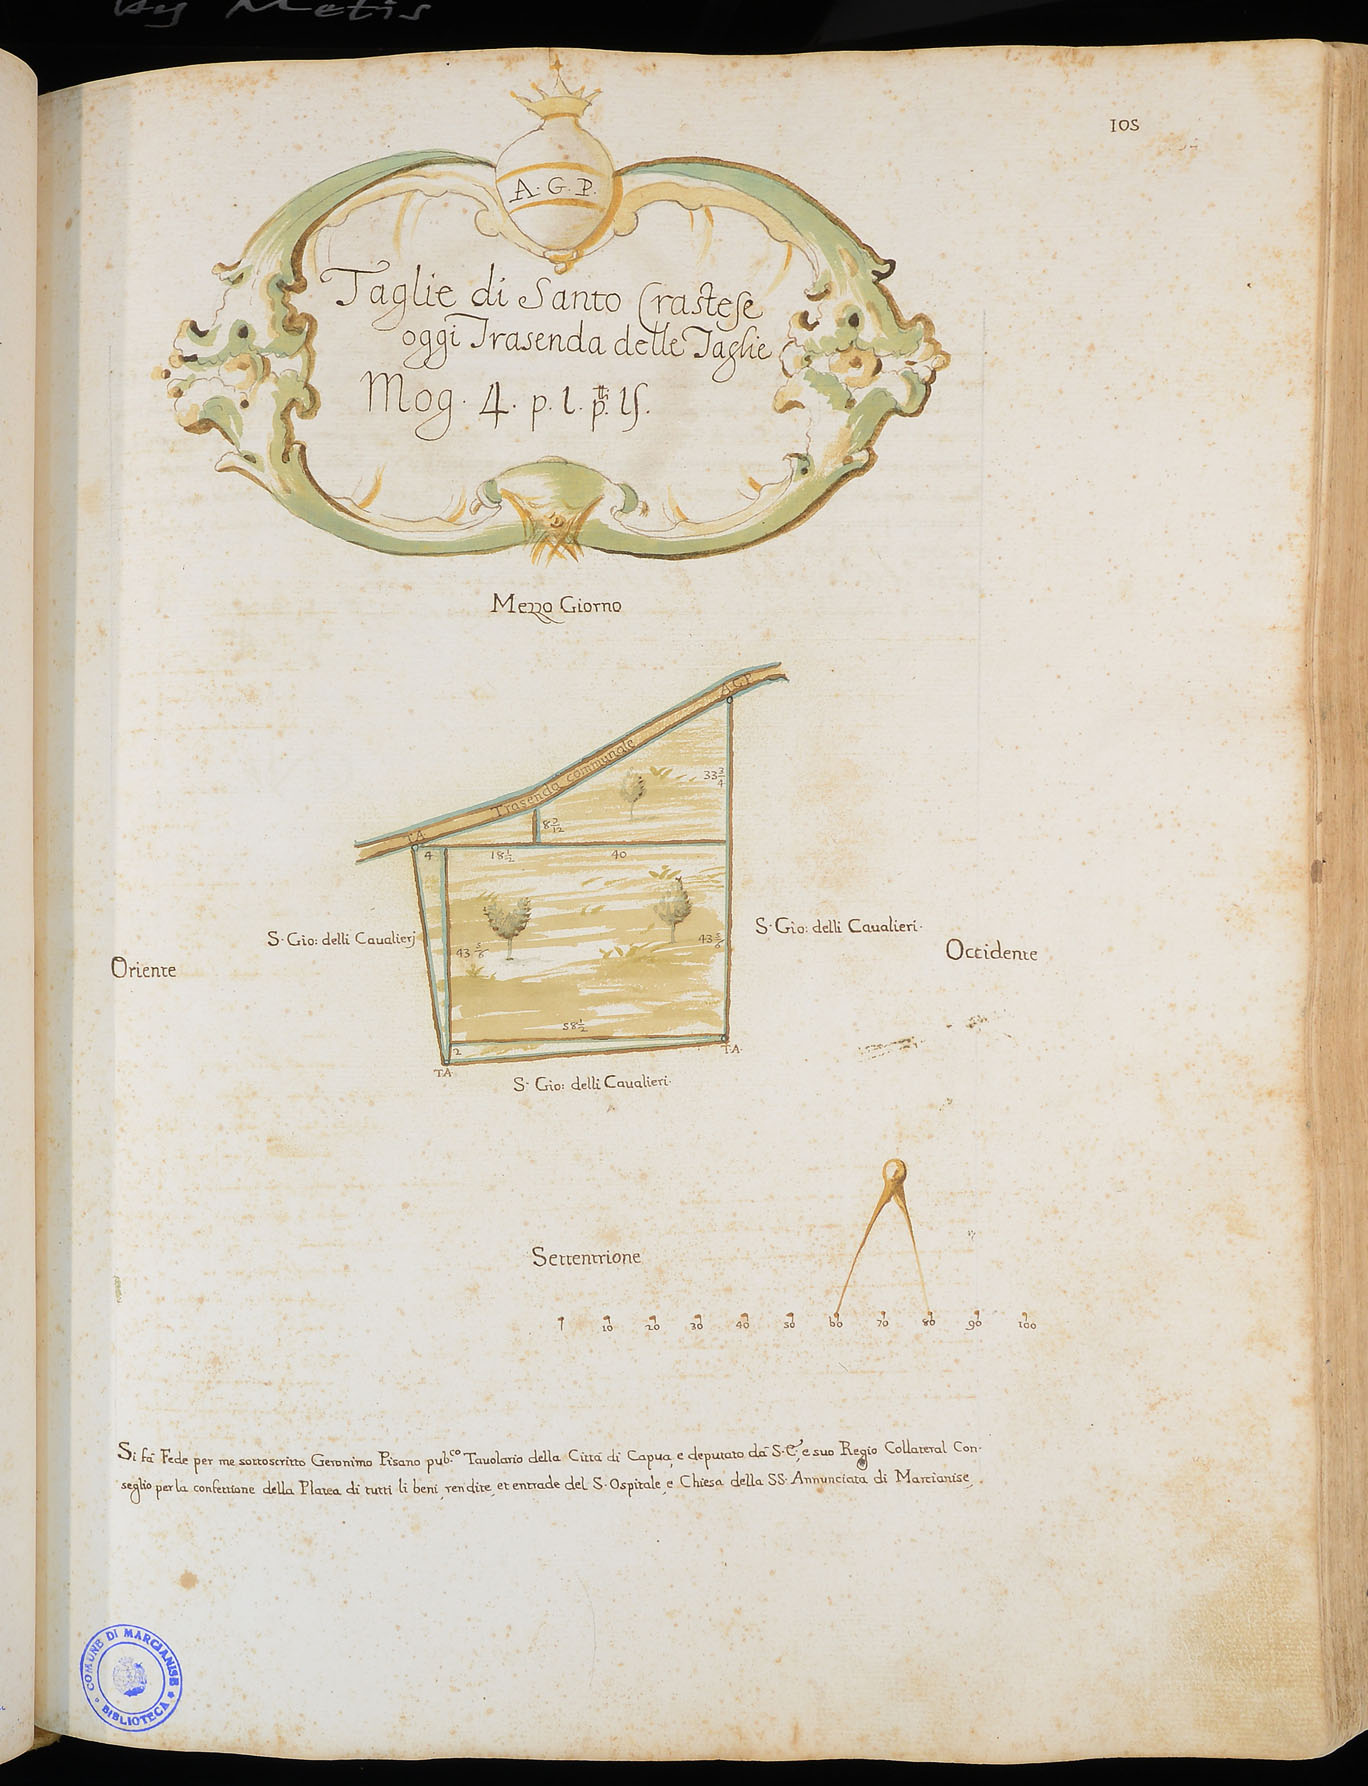 By Metis
105
A. G. P.
Taglie di Santo Crastese
oggi Trasenda delle Taglie
Mog. 4. p. 1.
Mezzo Giorno
A.G.P.
Trasenda communale
T.A.
33 3/4
4
18 1/2
40
S. Gio: delli Caualierj
43 5/6
43 5/6
S. Gio: delli Caualieri.
Oriente
Occidente
58 1/2
2
T.A.
T.A.
S. Gio: delli Caualieri.
Settentrione
1 10 20 30 40 50 60 70 80 90 100
Si fà Fede per me sottoscritto Geronimo Pisano pub.co Tauolario della Città di Capua, e deputato dà S. E., e suo Regio Collateral Con-
seglio per la confettione della Platea di tutti li beni, rendite, et entrade del S. Ospitale, e Chiesa della SS. Annunciata di Marcianise,
COMUNE DI MARCIANISE
BIBLIOTECA